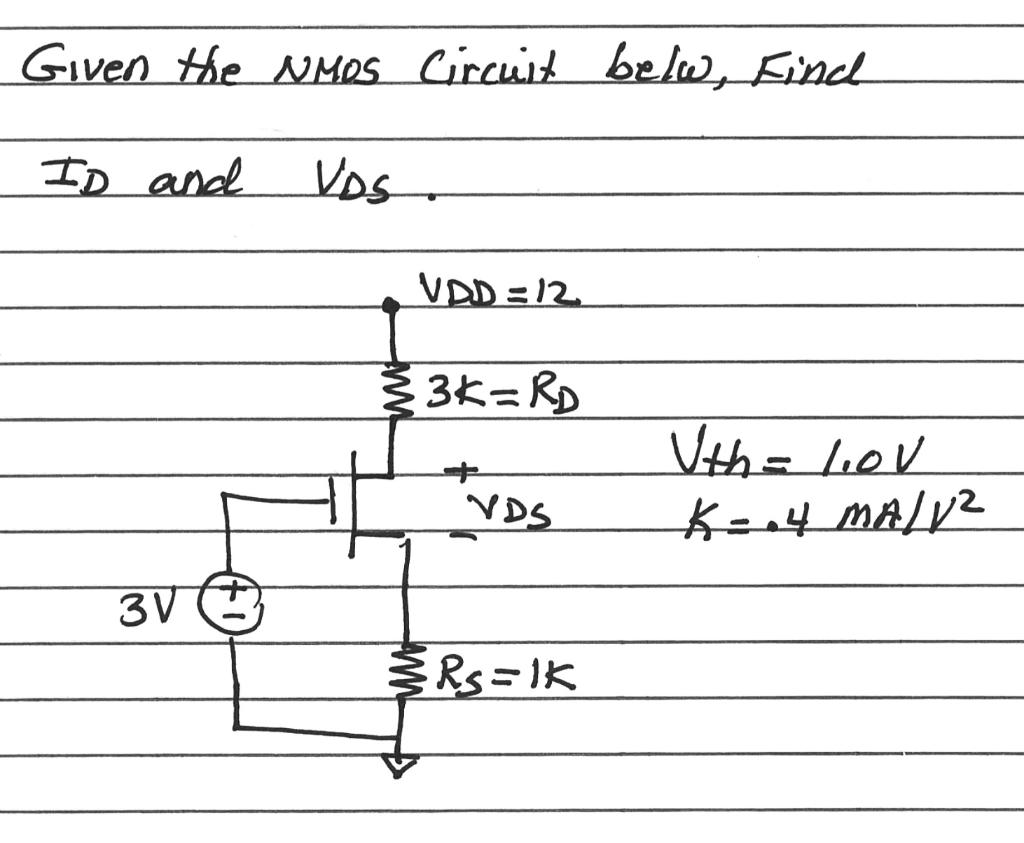 Given the NMOS Circuit belw, Find
ID and VDS.
VDD = 12
3K = RD
Vth = 1.0V
+
VDS
-
K = .4 mA/V²
3V
+
-
RS = 1K